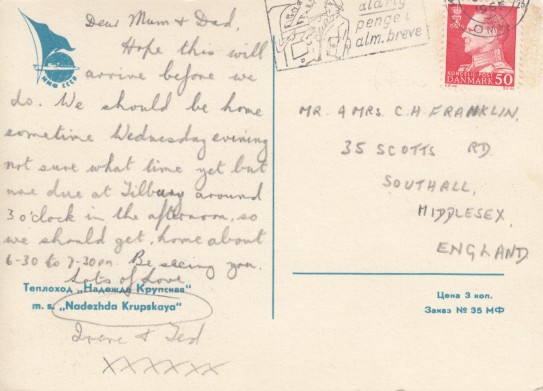 Dear Mum & Dad,
Hope this will
arrive before we
do. We should be home
sometime Wednesday evening
not sure what time yet but
are due at Tilbury around
3 o'clock in the afternoon, so
we should get home about
6-30 to 7-30pm. Be seeing you.
Lots of Love
Irene & Ted
xxxxxx
Теплоход „Надежда Крупская"
m. s. „Nadezhda Krupskaya"
aldrig
penge i
alm. breve
KONGELIG POST
DANMARK 50
MR. & MRS. C. H. FRANKLIN,
35 SCOTTS RD.
SOUTHALL,
MIDDLESEX,
ENGLAND
Цена 3 коп.
Заказ № 35 МФ